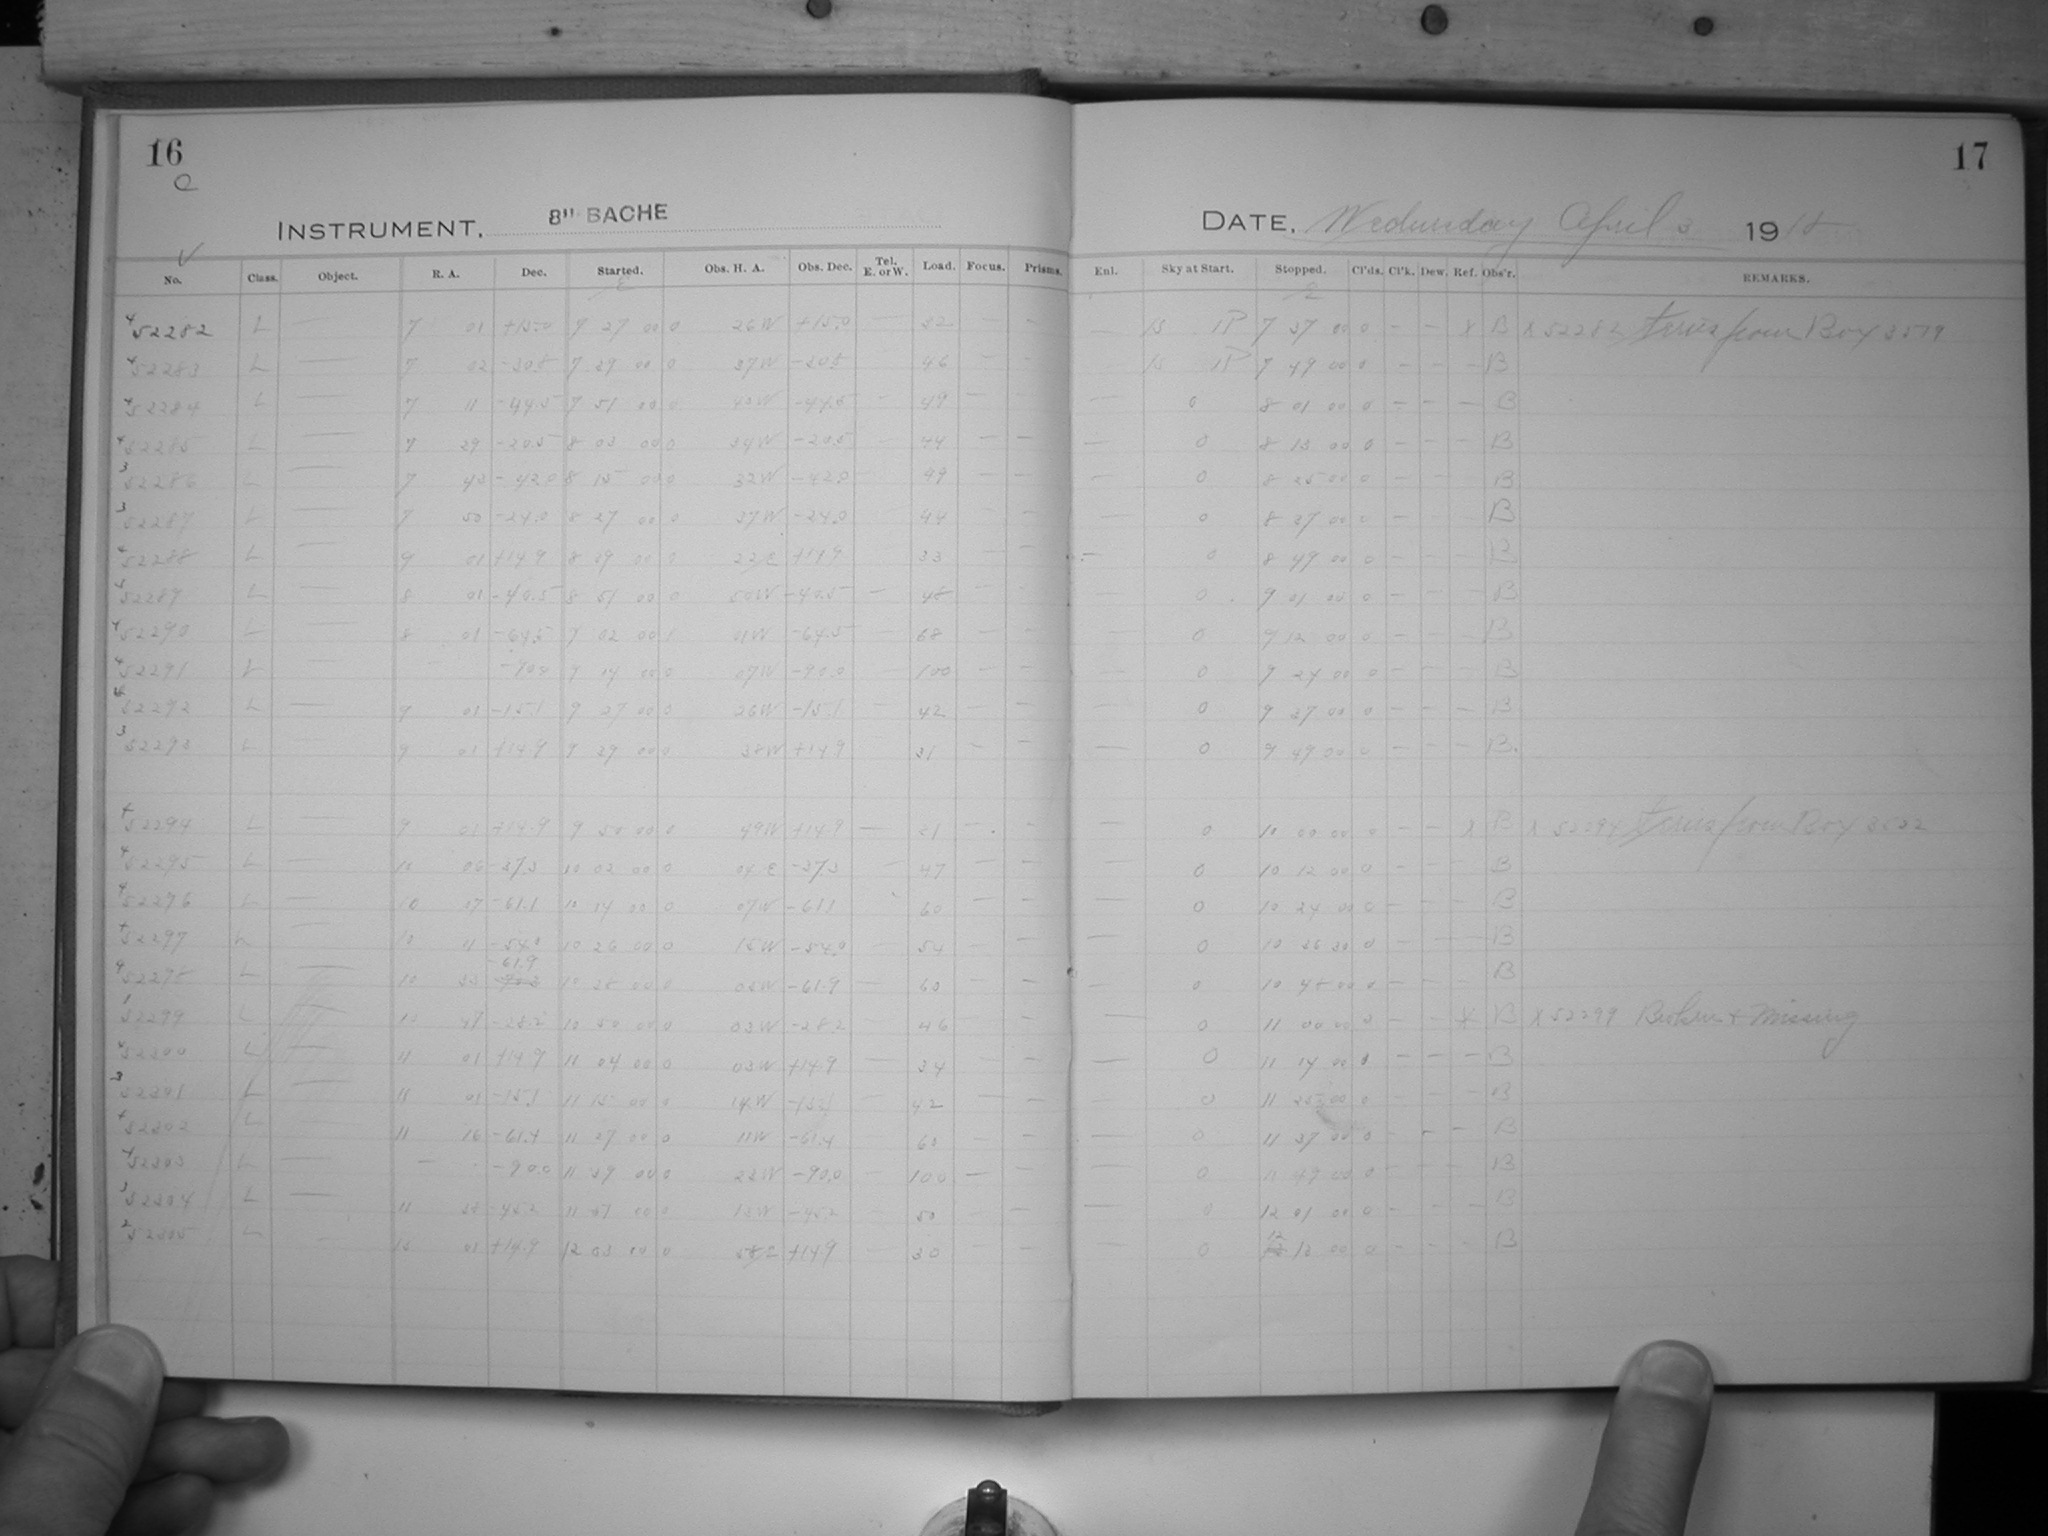 16
17
INSTRUMENT, 8" BACHE
DATE, Wednesday April 3 1918
No. Class. Object. R. A. Dec. Started. Obs. H. A. Obs. Dec. Tel. E. or W. Load. Focus. Prisms. Enl. Sky at Start. Stopped. Cl'ds. Cl'k. Dew. Ref. Obs'r. REMARKS.
52282 L — 7 01 +15.0 7 27 00 0 26W +15.0 — 32 — — — 7 37 00 0 — — x B x 52282 from Box 3519
52283 L — 7 02 -20.5 7 39 00 0 37W -20.5 — 46 — — 7 49 00 0 — — — B
52284 L — 7 11 -44.5 7 51 00 0 40W -44.5 — 49 — — — 0 8 01 00 0 — — — B
52285 L — 7 29 -20.5 8 03 00 0 34W -20.5 — 44 — — — 0 8 13 00 0 — — — B
52286 L — 7 43 -42.0 8 15 00 0 32W -42.0 — 49 — — — 0 8 25 00 0 — — B
52287 L — 7 50 -24.0 8 27 00 0 37W -24.0 44 — — — 0 8 37 00 0 — B
52288 L — 9 01 +14.9 8 39 00 0 22E +14.9 — 33 — — — 0 8 49 00 0 — — — B
52289 L — 8 01 -40.5 8 51 00 0 50W -40.5 — 48 — — — 0 9 01 00 0 — — — B
52290 L — 8 01 -64.5 9 02 00 1 01W -64.5 — 68 — — — 0 9 12 00 0 — — — B
52291 L — -90.0 9 14 00 0 07W -90.0 — 100 — — — 0 9 24 00 0 — — — B
52292 L — 9 01 -15.1 9 27 00 0 26W -15.1 — 42 — — — 0 9 37 00 0 — — — B
52293 L — 9 01 +14.9 9 39 00 0 38W +14.9 31 — — — 0 9 49 00 0 — — — B
52294 L — 9 01 +14.9 9 50 00 0 49W +14.9 — 31 — — — 0 10 00 00 0 — — x B x 52294 from Box 3522
52295 L — 10 06 -37.3 10 02 00 0 04 E -37.3 — 47 — — — 0 10 12 00 0 — — — B
52296 L — 10 07 -61.1 10 14 00 0 07W -61.1 60 — — — 0 10 24 00 0 — — — B
52297 L — 10 11 -54.0 10 26 00 0 15W -54.0 — 54 — — — 0 10 36 00 0 — — — B
52298 L — 10 33 -61.9 10 38 00 0 05W -61.9 — 60 — — — 0 10 48 00 0 — — — B
52299 L — 10 47 -28.2 10 50 00 0 03W -28.2 — 46 — — — 0 11 00 00 0 — — x B x 52299 Broken + Missing
L — 11 01 +14.9 11 04 00 0 03W +14.9 — 34 — — — 0 11 14 00 0 — — — B
L — 11 01 -15.1 11 15 00 0 14W -15.1 — 42 — — — 0 11 25 00 0 — — — B
52302 L — 11 16 -61.4 11 27 00 0 11W -61.4 — 60 — — — 0 11 37 00 0 — — — B
52303 L — — -90.0 11 39 00 0 23W -90.0 — 100 — — — 0 11 49 00 0 — — — B
52304 L — 11 38 -45.2 11 51 00 0 13W -45.2 — 50 — — — 0 12 01 00 0 — — — B
52305 L — 13 01 +14.9 12 03 00 0 58E +14.9 — 30 — — 0 12 13 00 0 — — — B